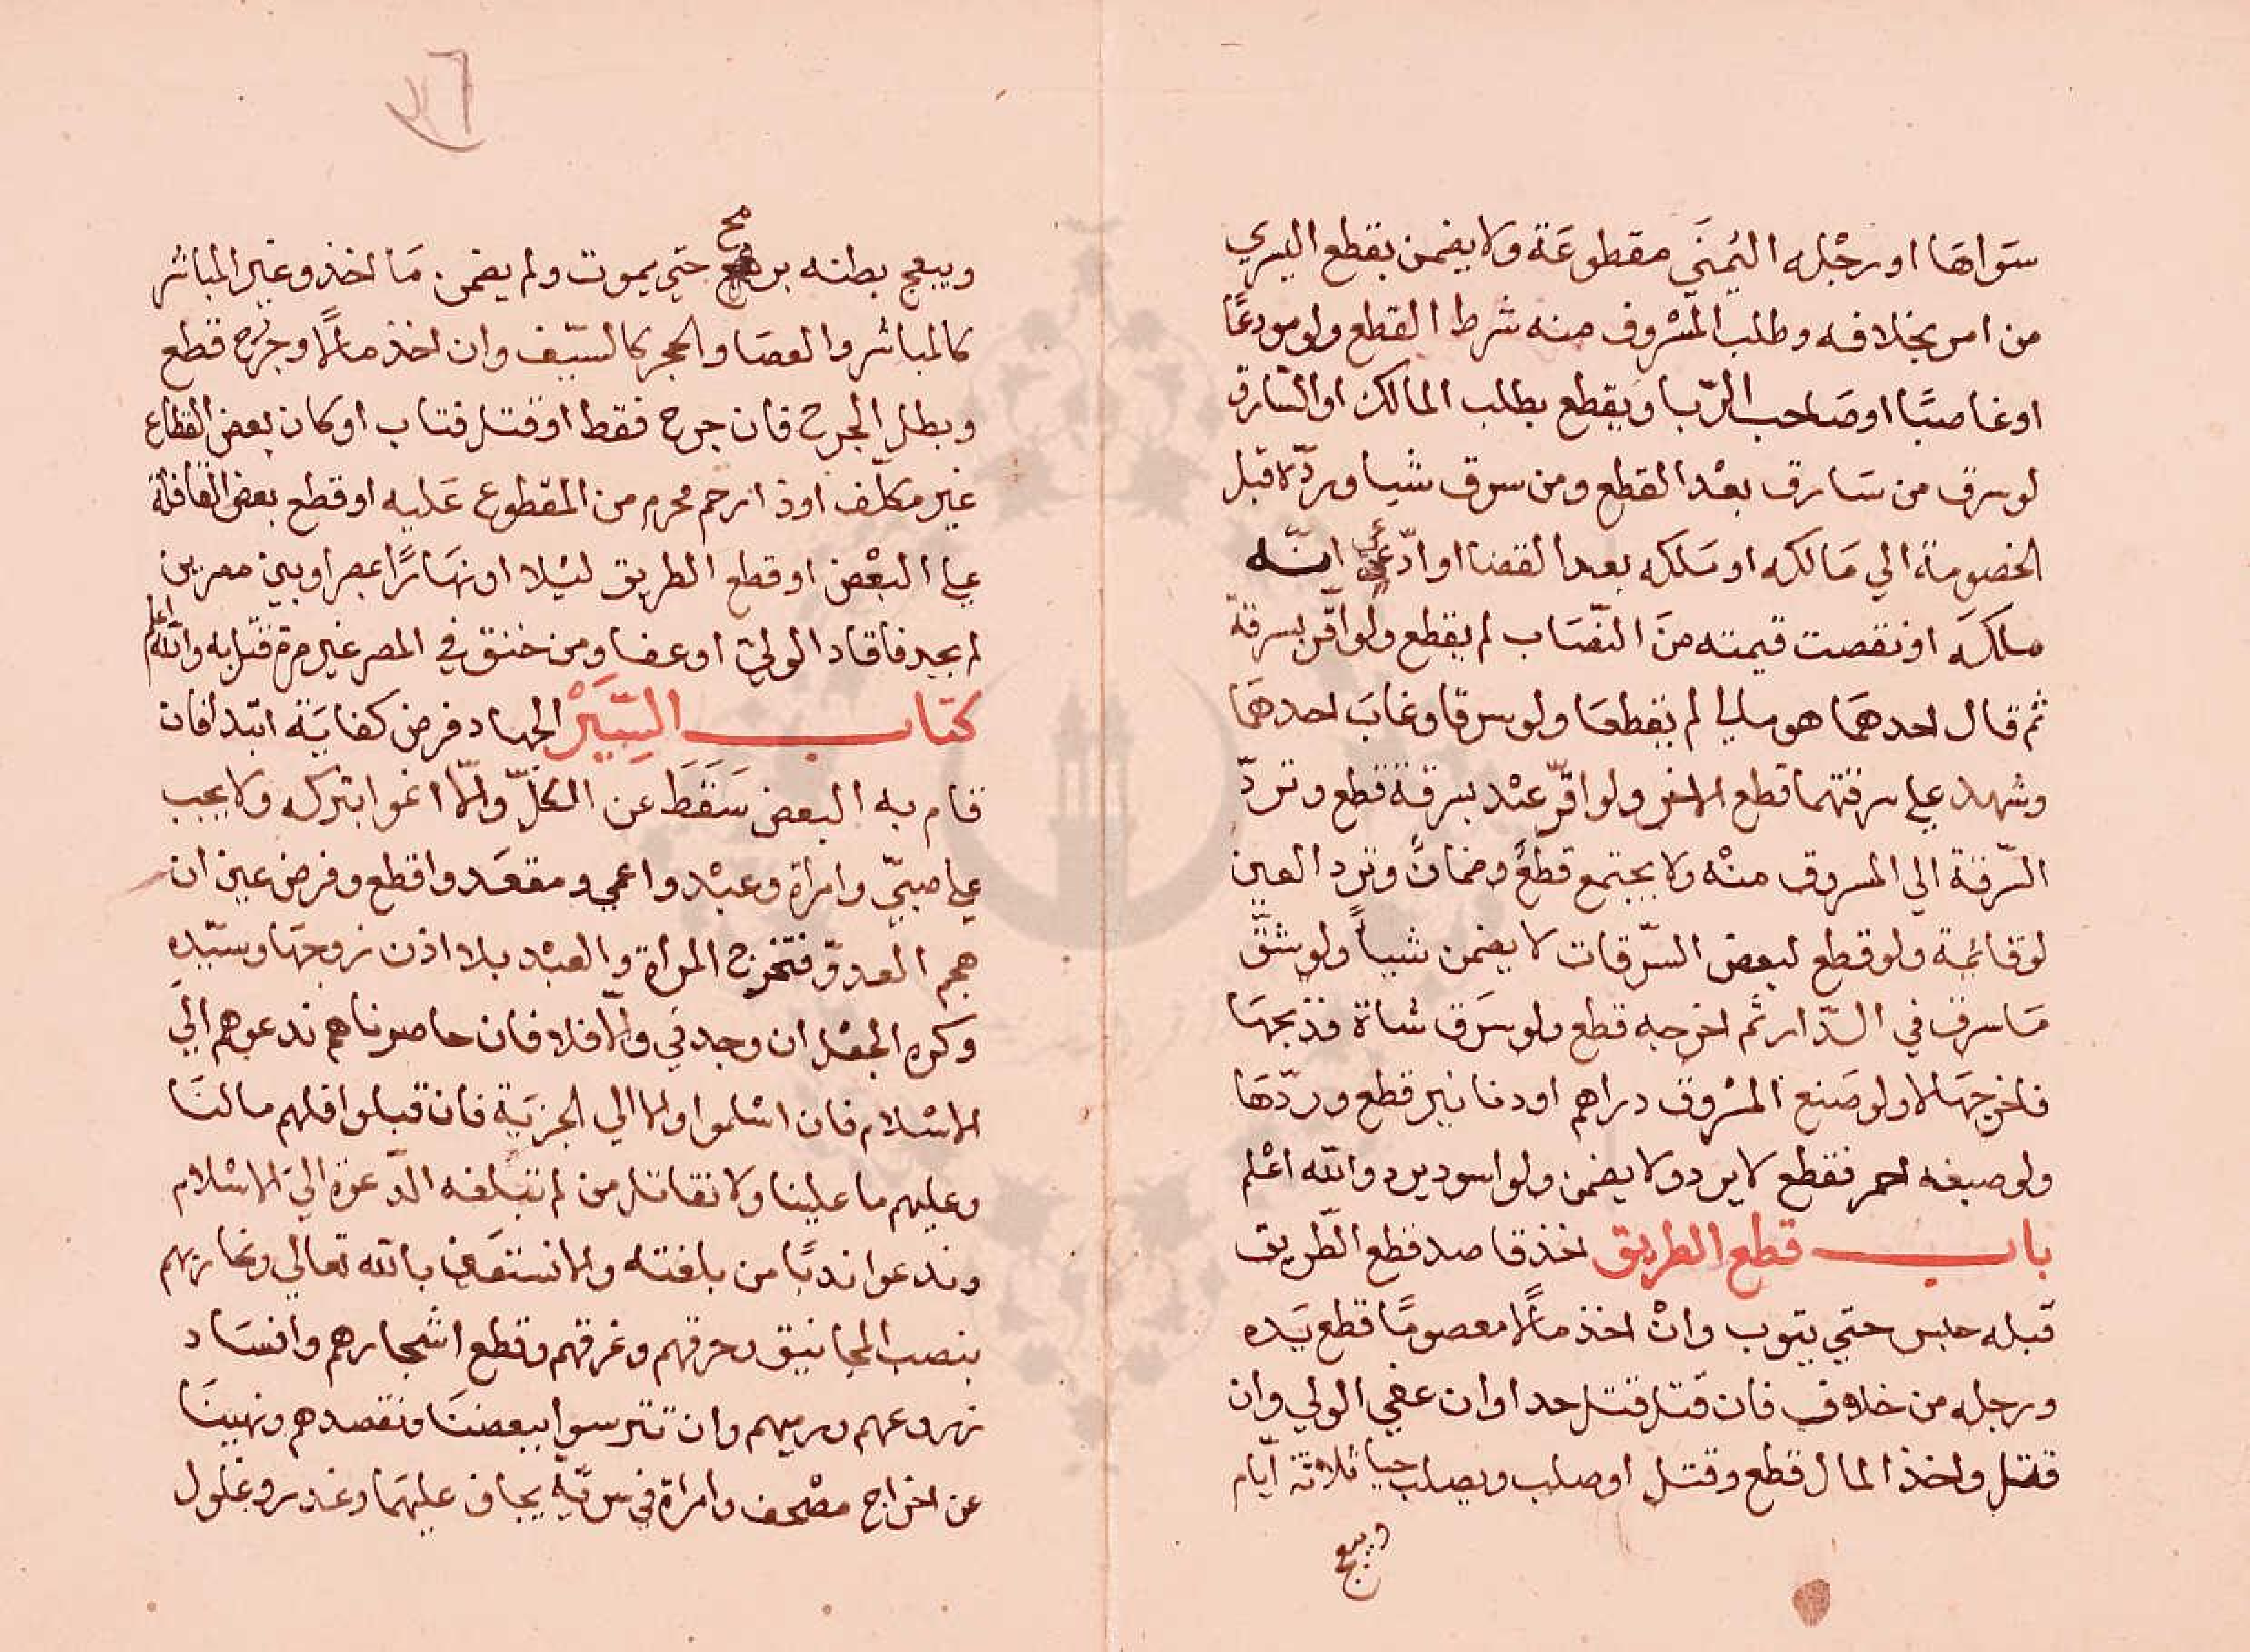 سَواهَا او رجْله اليُمنَى مقطوعَة ولا يضمن بقطع اليسري
من امر بخلافه وطلب المسْروق منه شرط القطع ولو مودعًا
او غاصبًا او صَاحب الرّبا ويقطع بطلب المالك او السّارق
لو سرق من سَارق بعْد القطع ومن سرق شيا وردّه قبل
الخصومة الي مَالكه او مَلكه بعد القضا او ادّعي انّه
ملكَه او نقصت قيمته منَ النّصَاب لم يقطع ولو اقّر بسرقة
ثم قال احدهمَا هو مالي لم يقطعَا ولو سرقا وغابَ احدهمَا
وشهد علي سرقتهما قطع الاخر ولو اقرّ عبْد بسرقة قطع وتردّ
السّرقة الي المسروق منْه ولا يجتمع قطعٌ وضمانٌ وترد العين
لو قائمة ولو قطع لبعض السّرقات لا يضمن شياً ولو شقّ
مَا سرق في الدّار ثم اخرجه قطع ولو سَرق شاة فذبحهَا
فاخرجهَا لا ولو صَنع المسْروق دراهم او دنانير قطع وردّهَا
ولو صبغه احمر فقطع لا يرد ولا يضمن ولو اسود يرد والله اعْلم
باب قطع الطريق اخذ قاصد قطع الطّريق
قبله حبس حتي يتوب وانْ اخذ مالًا معصومًا قطع يَده
ورجله من خلاف فان قتل قتل حدا وان عفي الولي وان
قتل واخذ المال قطع وقتل او صلب ويصلب حيا ثلاثة ايّام
ويبعج
ويبعج بطنه برمح حتي يموت ولم يضمن مَا اخذ وغير المباشر
كالمباشر والعصَا والحجر كالسّيف وان اخذ مالًا وجرح قطع
وبطل الجرح فان جرح فقط او قتل فتاب او كان بعض القطاع
غير مكلّف او ذا رحم محرم من المقطوع عَليه او قطع بعض القافلة
علي البعْض او قطع الطريق ليْلا او نهَارًا بمصر او بين مصرين
لم يحد فاقاد الوليّ او عفا ومن خنق في المصر غير مرة قتل به والله اعلم
كتاب السِّيَرْ الجهاد فرض كفايَة ابتدا فان
قام به البعض سَقَطَ عن الكلّ والّا اثموا بتركه ولا يجب
علي صبيّ وامراة وعبْد واعمي ومقعَد واقطع وفرض عين ان
هجم العدوّ فتخرج المراة والعبْد بلا اذن زوجهَا وسيّدهِ
وكره الجعْل ان وجد في والّا فلا فان حاصرناهم ندعوهم الي
الاسْلام فان اسْلموا والا الي الجزيَة فان قبلوا فلهم ما لنَا
وعليهم ما علينا ولا نقاتل من لم تبلغه الدّعوة الي الاسْلام
وندعوا ندبًا من بلغته والا نستعَين بالله تعالي ونحاربهم
بنصب المجانيق وحرقهم وغرقهم وقطع اشجارهم وافسَاد
زروعهم ورميهم وان تترسوا ببعضنَا ونقصدهم ونهينَا
عن اخراج مصْحف وامراة في سريّة يخاف عليهمَا وغدر وغلول